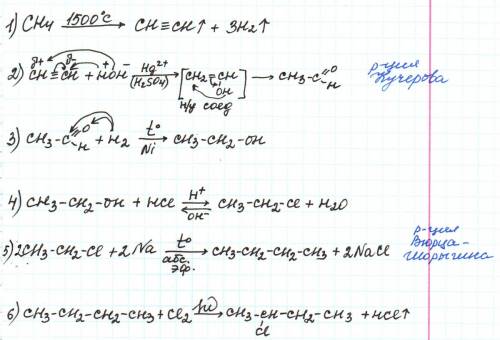 1) CH4 1500°C → CH≡CH↑ + 3H2↑
2) δ+ δ- CH≡CH + H+OH- Hg2+ (H2SO4) → [CH2=CH OH] → CH3-C=O H
н/у соед
р-ция Кучерова
3) CH3-C=O H + H2 t° Ni → CH3-CH2-OH
4) CH3-CH2-OH + HCl H+ ⇄ OH- CH3-CH2-Cl + H2O
5) 2CH3-CH2-Cl + 2Na t° абс. эфр. → CH3-CH2-CH2-CH3 + 2NaCl
р-ция Вюрца-Шорыгина
6) CH3-CH2-CH2-CH3 + Cl2 hν → CH3-CH-CH2-CH3 + HCl↑
Cl